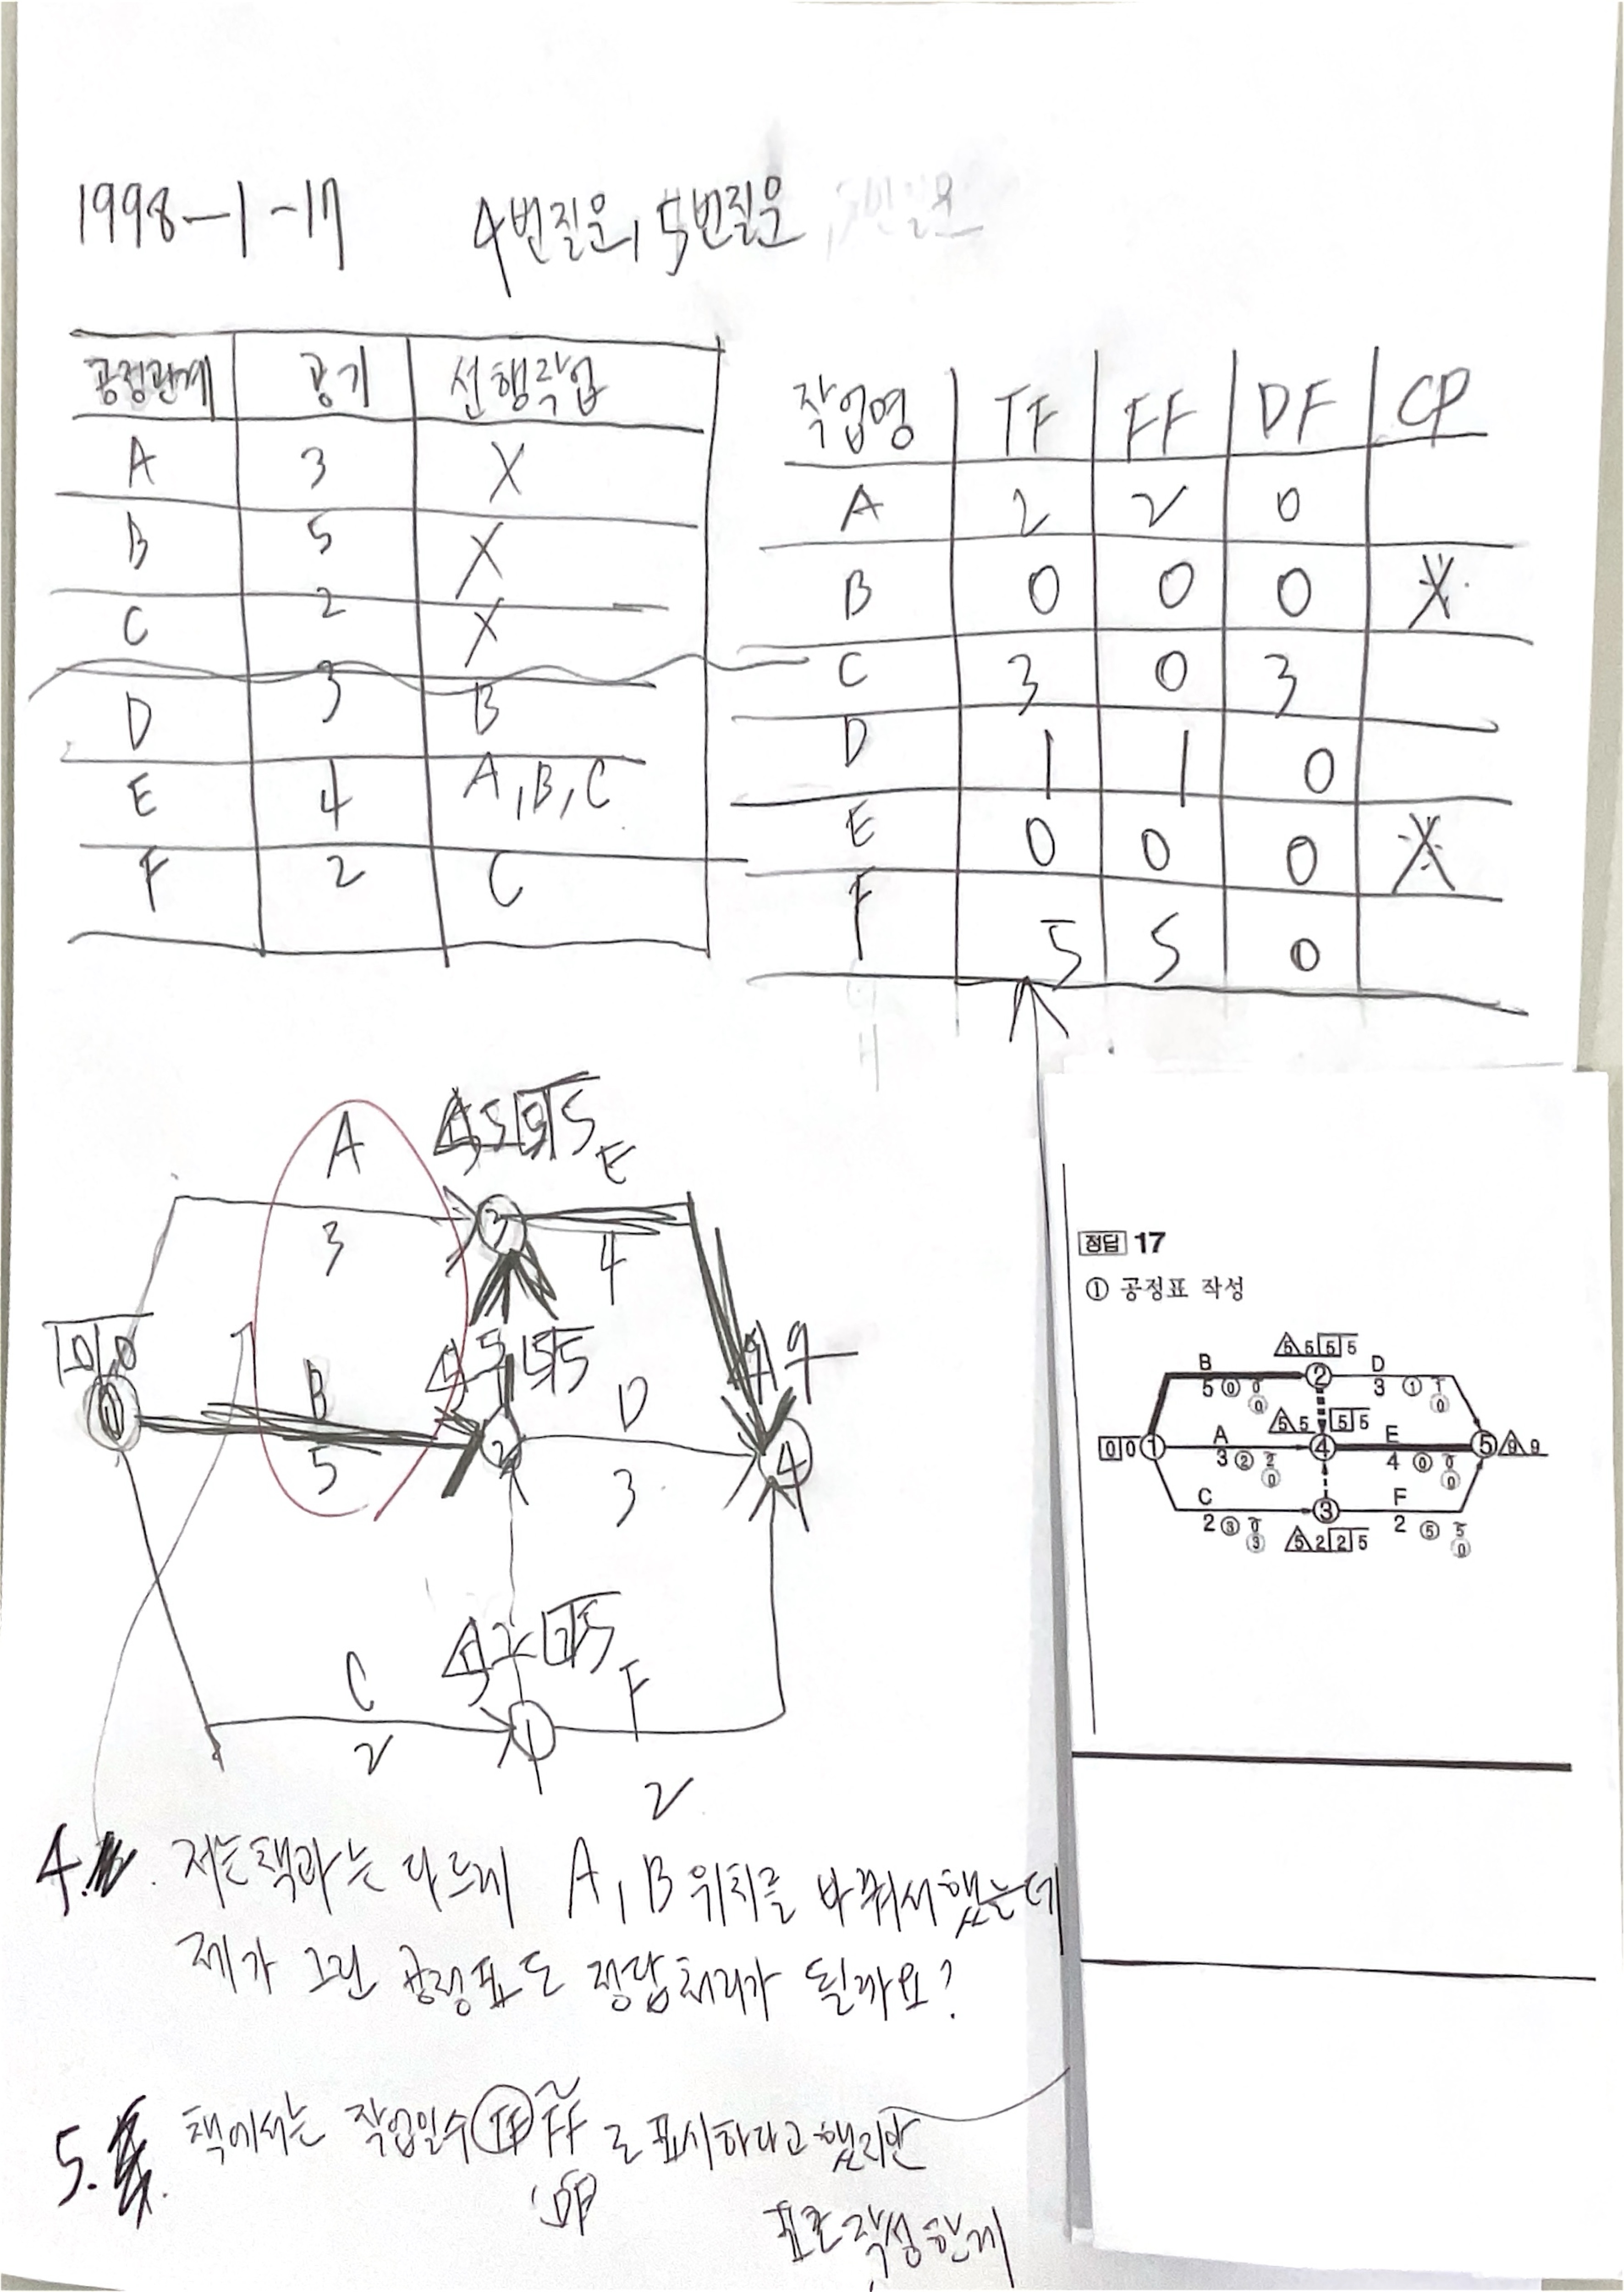 1998-1-17 4번질문, 5번질문
공정관계 공기 선행작업
A 3 X
B 5 X
C 2 X
D 3 B
E 4 A, B, C
F 2 C
작업명 TF FF DF CP
A 2 2 0
B 0 0 0 X
C 3 0 3
D 1 1 0
E 0 0 0 X
F 5 5 0
A
3
5 5 5
E
4
3
0 0
B
5
5 5 5
2
D
3
9 9
4
C
2
2 5
1
F
2
정답 17
① 공정표 작성
B
5 0 0
0
5 5 5 5
②
D
3 1 1
0
0 0 ①
A
3 2 2
0
5 5 5 5
④
E
4 0 0
0
⑤ 9 9
C
2 3 0
3
③
5 2 2 5
F
2 5 5
0
4. 저는 책과는 다르게 A, B 위치를 바꿔서 했는데
제가 그린 공정표도 정답처리가 될까요?
5. 책에서는 작업일수 TF FF 로 표시하라고 했지만
DF
표로 작성한게